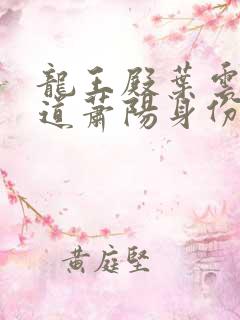 龍王殿葉雲
道蕭陽身份
黃庭堅